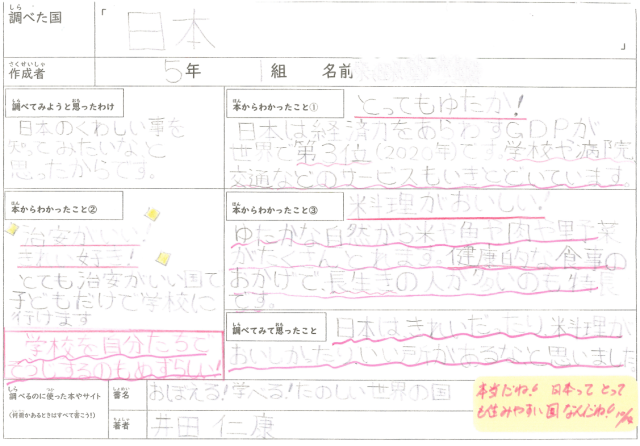 調べた国
「日本」
作成者
5年 1組 名前
調べてみようと思ったわけ
日本のくわしい事を
知ってみたいなと
思ったからです。
本からわかったこと①
とってもゆたか!
日本は経済力をあらわすGDPが
世界で第3位(2020年)です。学校や病院、
交通などのサービスもいきとどいています。
本からわかったこと②
治安がいい!
きれい好き!
とても治安がいい国で
子どもだけで学校に
行けます
学校を自分たちで
そうじするのもめずらしい!
本からわかったこと③
米料理がおいしい!
ゆたかな自然から米や魚や肉や野菜
がたくさんとれます。健康的な食事の
おかげで、長生きの人が多いのも特長
です。
調べてみて思ったこと
日本はきれいだったり料理が
おいしかったりいい所があるなと思いました
調べるのに使った本やサイト
(何冊かあるときはすべて書こう!)
書名
おぼえる!学べる!たのしい世界の国
著者
井田 仁康
本当だね!日本ってとって
も住みやすい国なんだね!